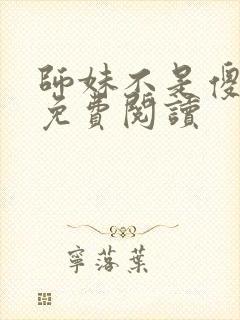 師妹不是傻
免費閱讀
寧落葉